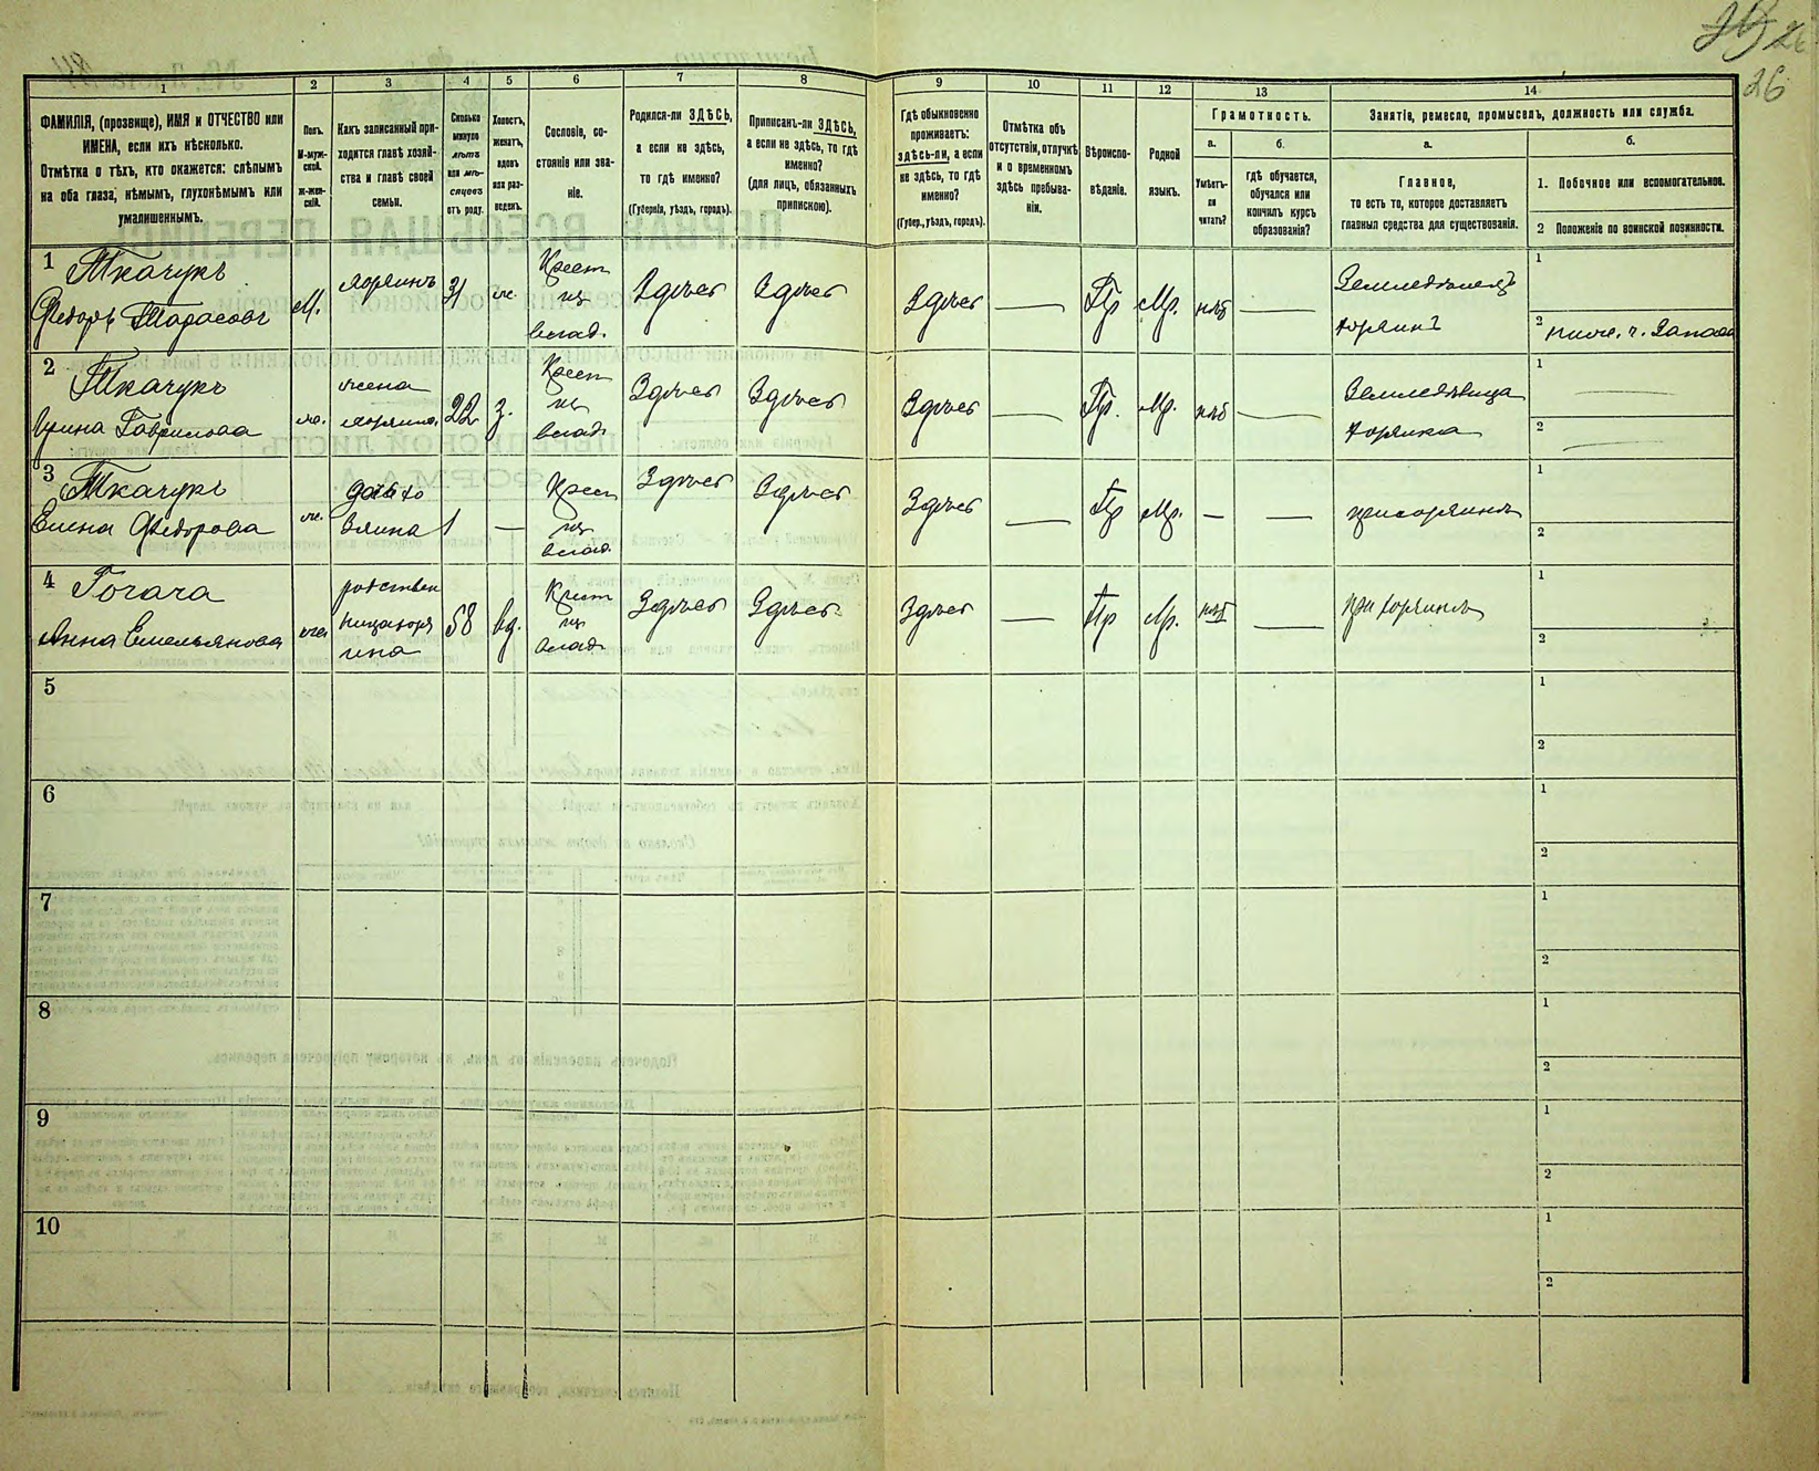 26
1
2
3
4
5
6
7
8
9
10
11
12
13
14
ФАМИЛІЯ, (прозвище), ИМЯ и ОТЧЕСТВО или
ИМЕНА, если ихъ нѣсколько.
Отмѣтка о тѣхъ, кто окажется: слѣпымъ
на оба глаза, нѣмымъ, глухонѣмымъ или
умалишеннымъ.
Полъ.
М-муж-
ской.
ж-жен-
скій.
Какъ записанный при-
ходится главѣ хозяй-
ства и главѣ своей
семьи.
Сколько
минуло
лѣтъ
или мѣ-
сяцевъ
отъ роду.
Холостъ,
женатъ,
вдовъ
или раз-
веденъ.
Сословіе, со-
стояніе или зва-
ніе.
Родился-ли ЗДѢСЬ,
а если не здѣсь,
то гдѣ именно?
(Губернія, уѣздъ, городъ).
Приписанъ-ли ЗДѢСЬ,
а если не здѣсь, то гдѣ
именно?
(для лицъ, обязанныхъ
припискою).
Гдѣ обыкновенно
проживаетъ:
здѣсь-ли, а если
не здѣсь, то гдѣ
именно?
(Губер., уѣздъ, городъ).
Отмѣтка объ
отсутствіи, отлучкѣ
и о временномъ
здѣсь пребыва-
ніи.
Вѣроиспо-
вѣданіе.
Родной
языкъ.
Грамотность.
а.
Умѣетъ-
ли
читать?
б.
гдѣ обучается,
обучался или
кончилъ курсъ
образованія?
Занятіе, ремесло, промыселъ, должность или служба.
а.
Главное,
то есть то, которое доставляетъ
главныя средства для существованія.
б.
1. Побочное или вспомогательное.
2 Положеніе по воинской повинности.
1
Ткачукъ
Федоръ Тарасовъ
М.
хозяинъ
31
ж.
Крест
из
влад.
Здѣсь
Здѣсь
Здѣсь
Пр
Мр.
нѣт
Земледѣлецъ
хозяинъ
1
2
2
Ткачукъ
Ирина Гаврилова
ж.
жена
хозяина
22
з.
Крест
из
влад
Здѣсь
Здѣсь
Здѣсь
Пр.
Мр.
нѣт
Земледѣлица
хозяйка
1
2
3
Ткачукъ
Елена Федорова
ж.
дочь хо
зяина
1
Крест
из
влад.
Здѣсь
Здѣсь
Здѣсь
Пр
Мр.
при хозяинѣ
1
2
4
Гогача
Анна Емельянова
ж
родствен
ница хозя
ина
58
вд.
Крест
из
влад
Здѣсь
Здѣсь
Здѣсь
Пр
Мр.
нѣт
при хозяинѣ
1
2
5
1
2
6
1
2
7
1
2
8
1
2
9
1
2
10
1
2